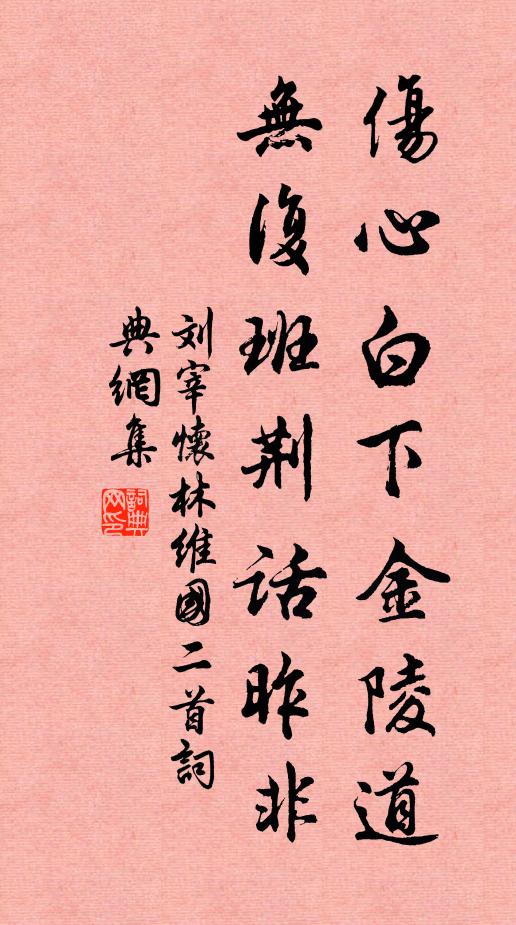 傷心白下金陵道
無復班荆話昨非
刘宰懷林維國二首詞
典網集
詞典网印